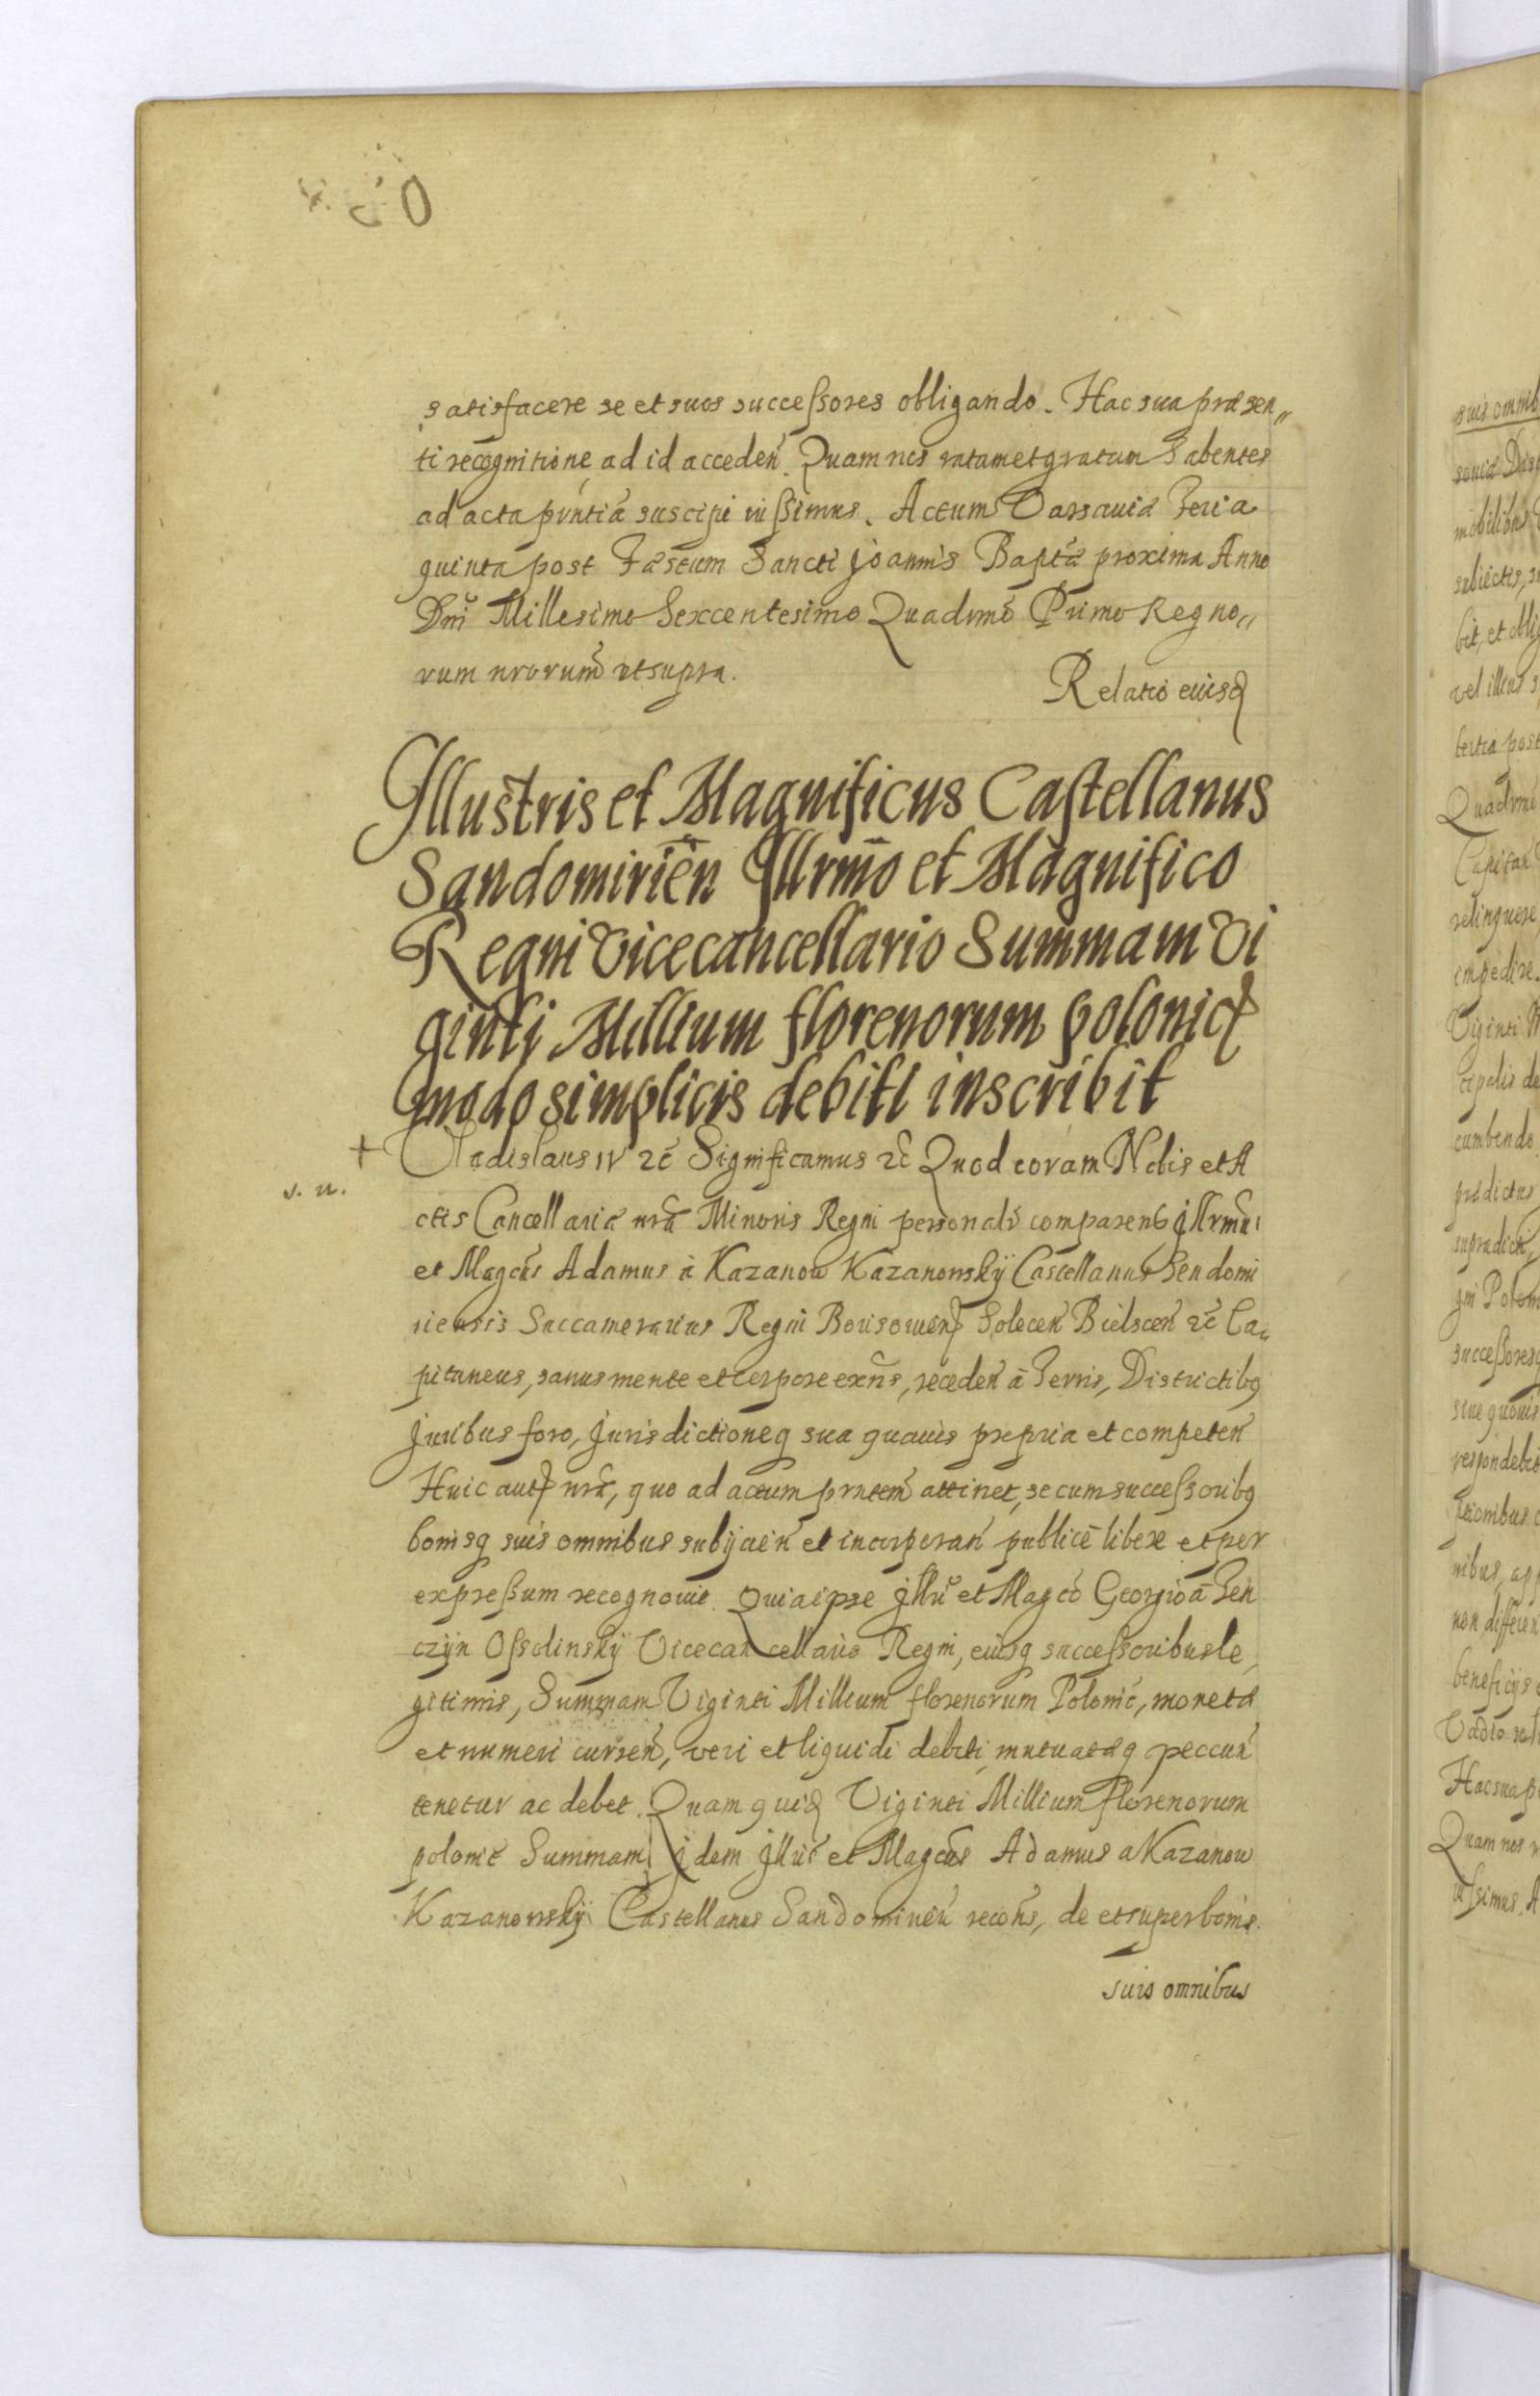 satisfacere se et suos successores obligando. Hac sua præsen„
ti recognitione ad id acceden̄. Quam nos ratam et gratam habentes
ad acta pñntiā suscipi iussimus. Actum Varsaviæ Feria
quinta post Fæstum Sancti Joannis Baptæ proxima Anno
Dni Millesimo Sexcentesimo Quadrmō Primo Regno„
rum nrorum̄ ut supra.
Relatio eiusd
Illustris et Magnificus Castellanus
Sandomirien̄ Illrm̄o et Magnifico
Regni Vicecancellario Summam Vi
ginti Millium florenorum polonic
modo simplicis debiti inscribit
+ Vladislaus IV ꝛc̄ Significamus ꝛc̄ Quod coram Nobis et A
s. n.
ctis Cancellariæ nræ Minoris Regni personalr̄ comparens Jllrmūs
et Magcūs Adamus à Kazanow Kazanowskÿ Castellanus Sendomi
riensis Succamerarius Regni Borisowien̄ Solecen̄ Bielscen̄ ꝛc̄ Ca„
pitaneus, sanus mente et corpore exñs, receden̄ à Terris, Districtibꝫ
Juribus foro, Jurisdictioneq sua quavis propria et competen̄
Huic autē nrā, quo ad actum pñtem̄ attinet, se cum successoribꝫ
bonisq suis omnibus subijcien̄ et incorporan̄ publicē libere et per
expressum recognovit. Quia ipse Jllrī et Magcō Georgio à Ten
czÿn Ossolinskÿ Vicecancellario Regni, eiusq successoribus le„
gitimis, Summam Viginti Millium florenorum Polonic̄, monetæ
et numeri curren̄, veri et liquidi debiti, mutuatæq peccun̄
tenetur ac debet. Quam quid Viginti Millium florenorum
polonic̄ Summam, Jdem Jllrīs et Magcūs Adamus a Kazanow
Kazanowskÿ Castellanus Sandomirien̄ recōns, de et super bonis
suis omnibus